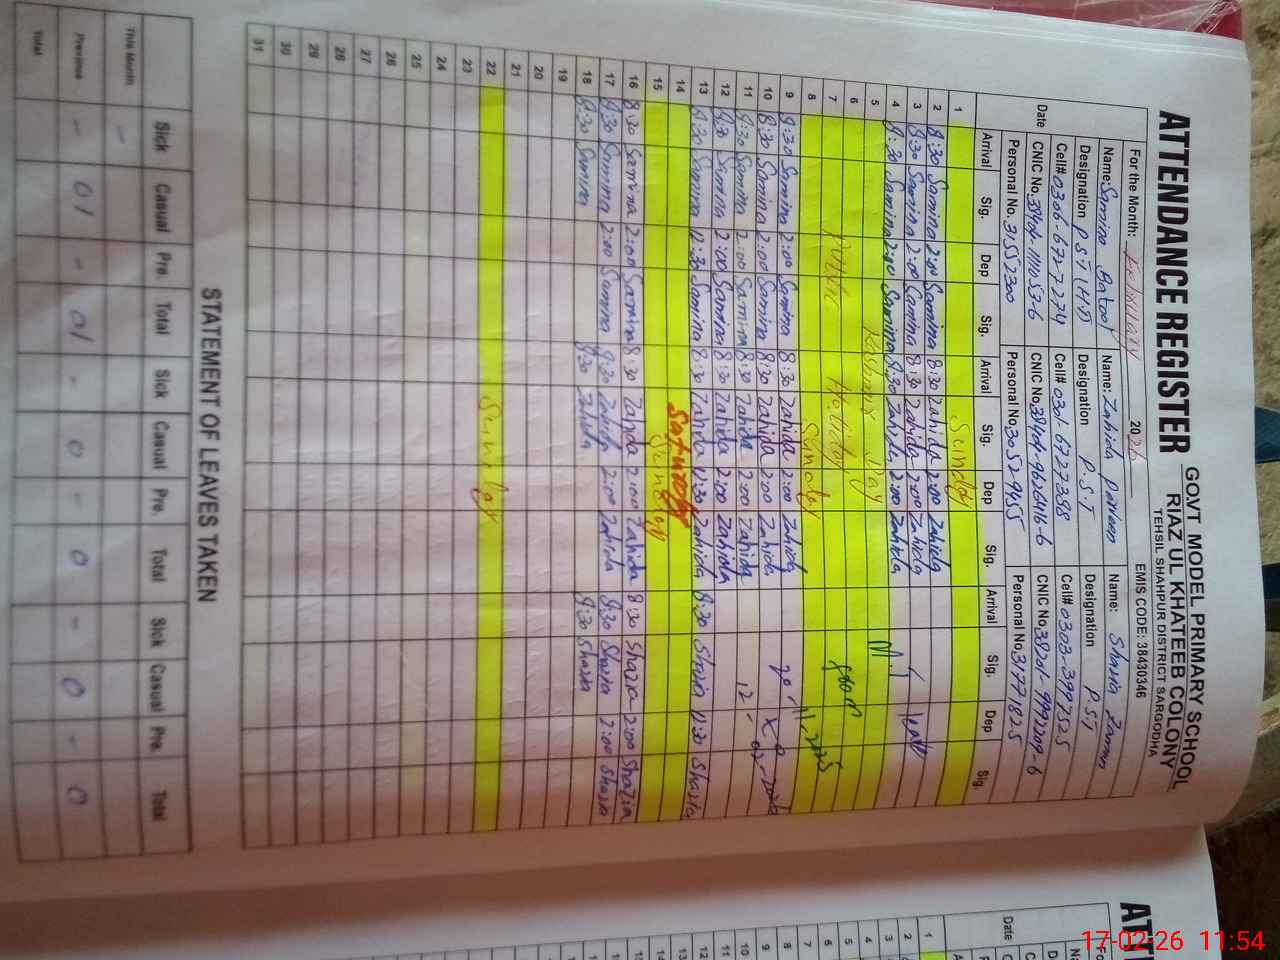 ATTENDANCE REGISTER
GOVT MODEL PRIMARY SCHOOL
RIAZ UL KHATEEB COLONY
TEHSIL SHAHPUR DISTRICT SARGODHA
For the Month: February 2026 EMIS CODE: 38430346
Name: Samina Batool Name: Zahida Parveen Name: Shazia Zaman
Designation PST (H) Designation P.S.T Designation P.ST
Cell# 0306-6727274 Cell# 0301-6727388 Cell# 0303-3997525
CNIC No. CNIC No. CNIC No.
Personal No. 31552300 Personal No. 30529455 Personal No. 31771825
Date Arrival Sig. Dep Sig. Arrival Sig. Dep Sig. Arrival Sig. Dep Sig.
1 Sunday
2 8:30 Samina 2:00 Samina 8:30 Zahida 2:00 Zahida
3 8:30 Samina 2:00 Samina 8:30 Zahida 2:00 Zahida
4 8:30 Samina 2:00 Samina 8:30 Zahida 2:00 Zahida
5 Kashmir Day
6
7 Public Holiday
8 Sunday
9 8:30 Samina 2:00 Samina 8:30 Zahida 2:00 Zahida
10 8:30 Samina 2:00 Samina 8:30 Zahida 2:00 Zahida
11 8:30 Samina 2:00 Samina 8:30 Zahida 2:00 Zahida
12 8:30 Samina 2:00 Samina 8:30 Zahida 2:00 Zahida
13 8:30 Samina 12:30 Samina 8:30 Zahida 12:30 Zahida 8:30 Shazia 12:30 Shazia
14 Saturday
15 Sunday
16 8:30 Samina 2:00 Samina 8:30 Zahida 2:00 Zahida 8:30 Shazia 2:00 Shazia
17 8:30 Samina 2:00 Samina 8:30 Zahida 2:00 Zahida 8:30 Shazia 2:00 Shazia
18 8:30 Samina 8:30 Zahida 8:30 Shazia
19
20
21
22 Sunday
23
24
25
26
27
28
29
30
31
STATEMENT OF LEAVES TAKEN
Sick Casual Pre. Total Sick Casual Pre. Total Sick Casual Pre. Total
This Month -
Previous - 01 - 01 - 0 - 0 - 0 - 0
Total
17-02-26 11:54